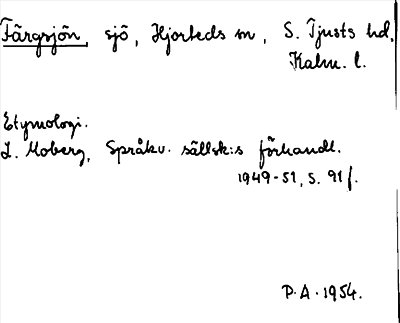 Färgsjön, sjö, Hjorteds sn, S. Tjusts hd,
Kalm. l.
Etymologi.
L. Moberg, Språkv. sällsk:s förhandl.
1949-51, s. 91 f.
P.A. 1954.